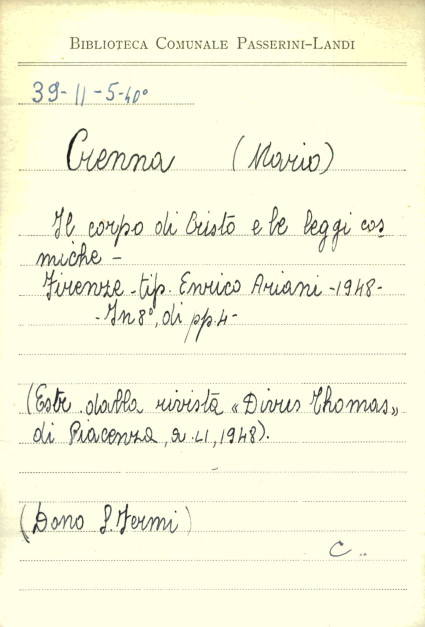 BIBLIOTECA COMUNALE PASSERINI-LANDI
39-11-5-40°
Crenna (Mario)
Il corpo di Cristo e le leggi cos
miche -
Firenze - tip. Enrico Ariani - 1948 -
- In 8°, di pp. 4 -
(Estr. dalla rivista «Divus Thomas»
di Piacenza, a. LI, 1948).
(Dono S. Fermi)
C..